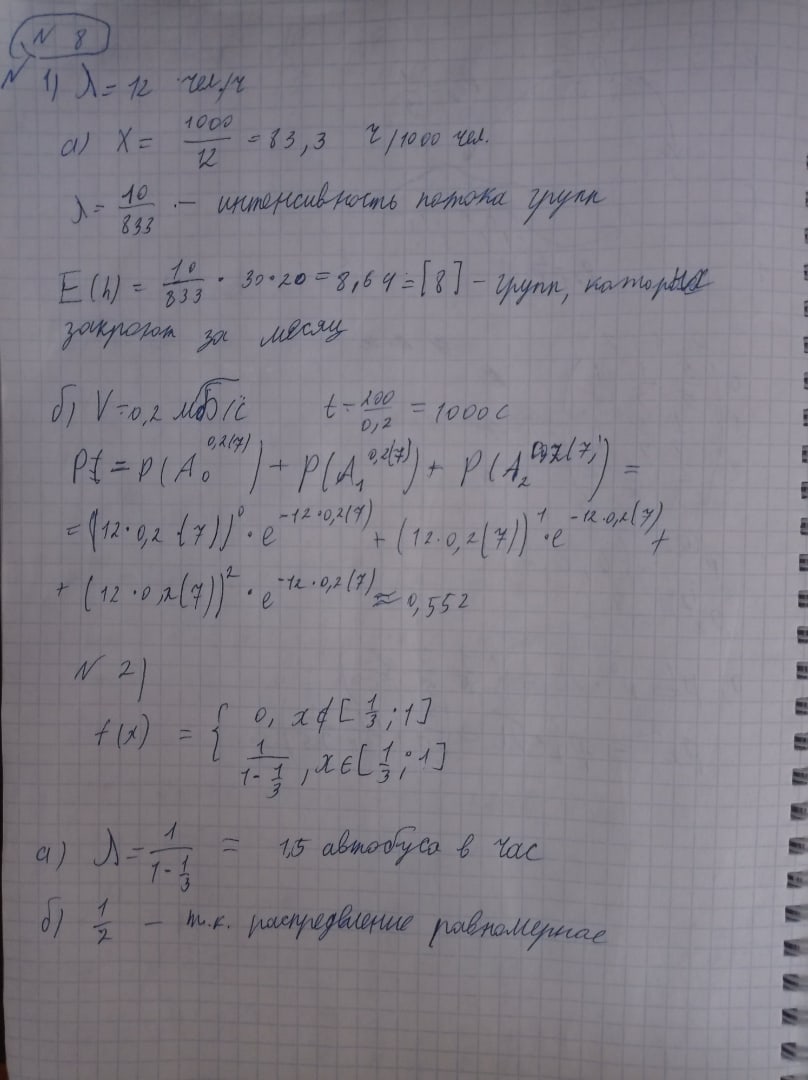 N 8
N 1) λ = 12 чел/ч
а) X = 1000/12 = 83,3 ч/1000 чел.
λ = 10/833 — интенсивность потока групп
E(h) = 10/833 · 30·20 = 8,64 = [8] – групп, которых
закроют за месяц
б) V = 0,2 Мб/с t = 200/0,2 = 1000 с
P = P(A₀^0,2(7)) + P(A₁^0,2(7)) + P(A₂^0,2(7)) =
= (12·0,2(7))^0 · e^(-12·0,2(7)) + (12·0,2(7))^1 · e^(-12·0,2(7)) +
+ (12·0,2(7))^2 · e^(-12·0,2(7)) ≈ 0,552
N 2)
f(x) = { 0, x∉[1/3; 1]
1/(1-1/3), x∈[1/3; 1]
а) λ = 1/(1-1/3) = 1,5 автобуса в час
б) 1/2 — т.к. распредвление равномерное